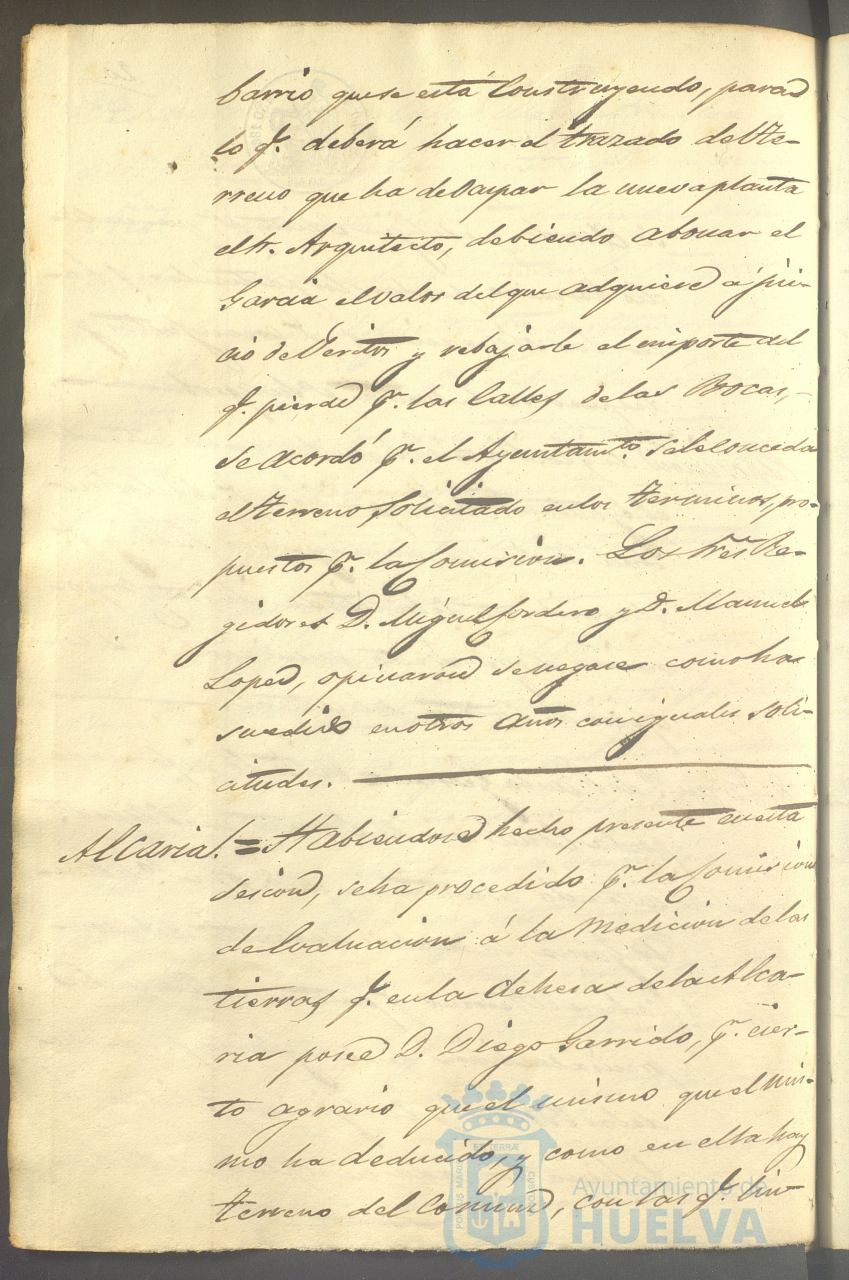 barrio que se está Construyendo, para
lo q.e deberá hacer el trazado del te-
rreno que ha de ocupar la nueva planta
el Sr. Arquitecto, debiendo abonar el
Garcia el valor del que adquiere á jui-
cio de Peritos y rebajarle el importe del
q.e pierde p.r las Calles de las Bocas,
se acordó p.r el Ayuntam.to se le conceda
el terreno solicitado en los terminos, pro-
puestos p.r la Comision. Los Sres Re-
gidores D. Miguel Cordero y D. Manuel
Lopez, opinaron se negase como ha
sucedido en otros años con iguales soli-
citudes.
Alcaria. = Habiendose hecho presente en esta
Sesion, se ha procedido p.r la Comision
de Evaluacion á la medicion de las
tierras q.e en la dehesa de la Alca-
ria posee D. Diego Garrido, p.r cier-
to agravio que el mismo que el mis-
mo ha deducido, y como en ella hay
terreno del Comun, con las q.e lin-
Ayuntamiento de
HUELVA